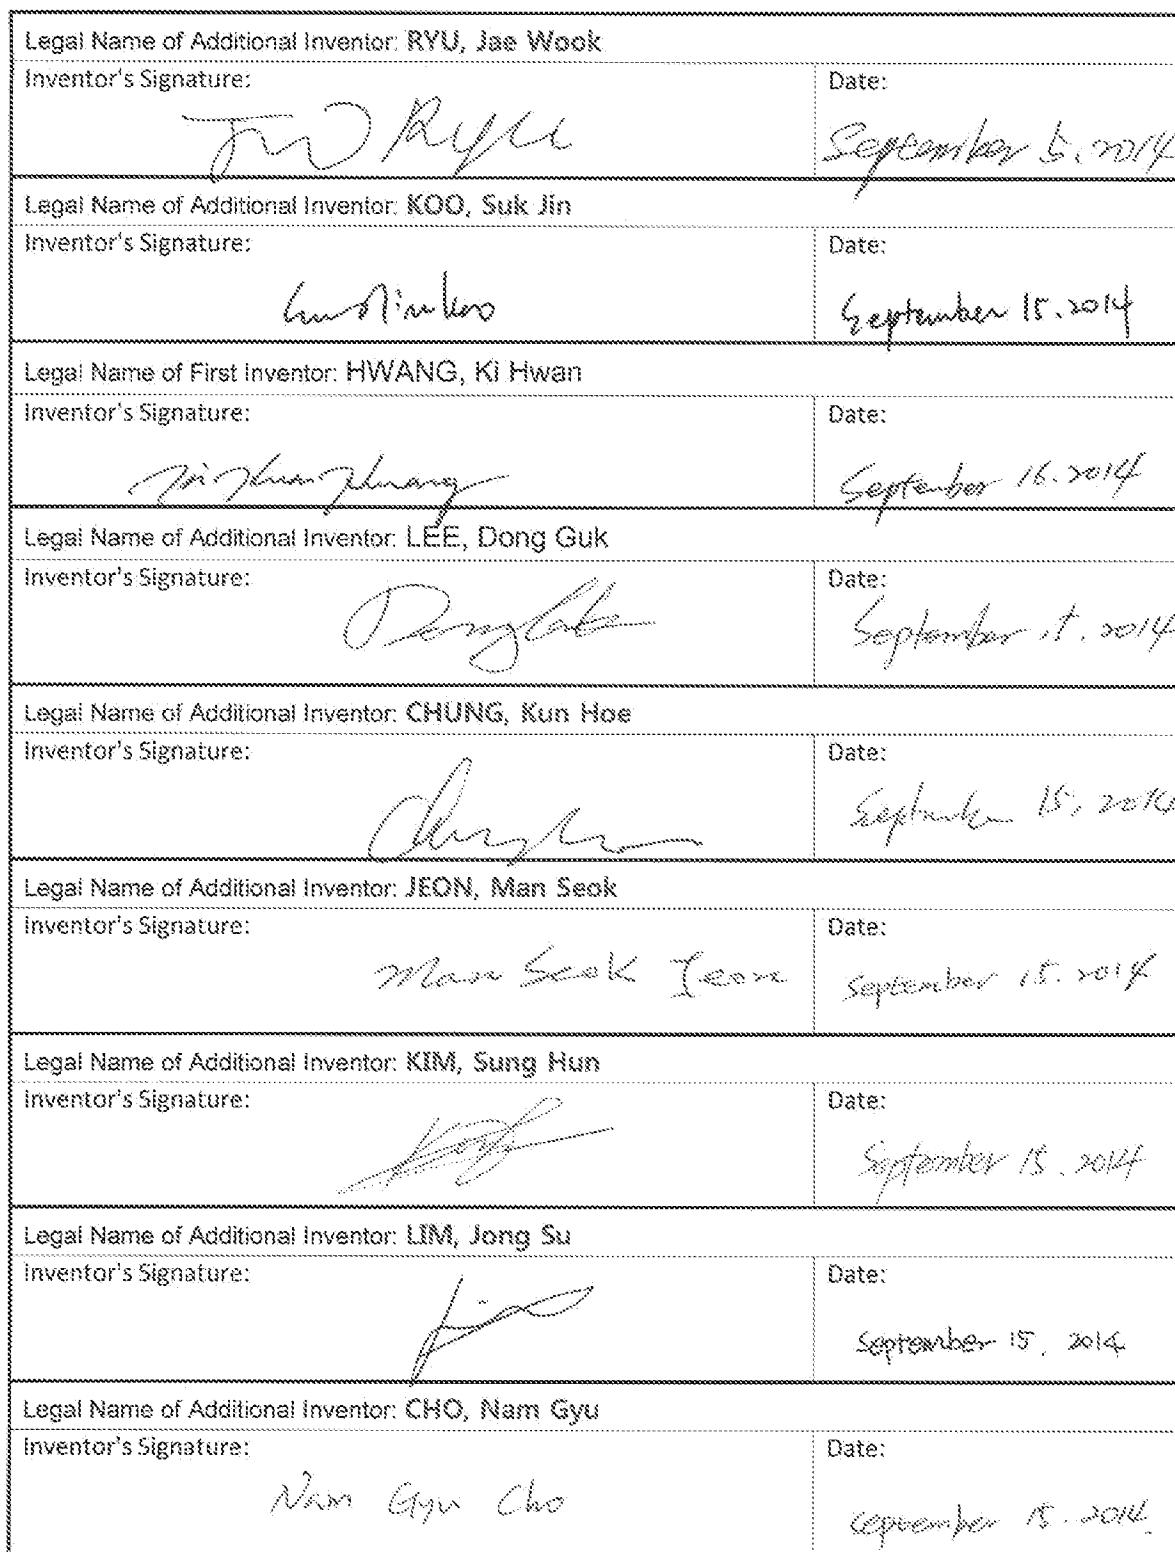 Legal Name of Additional Inventor: RYU, Jae Wook
Inventor's Signature: Date:
JW Ryu September 5, 2014
Legal Name of Additional Inventor: KOO, Suk Jin
Inventor's Signature: Date:
September 15. 2014
Legal Name of First Inventor: HWANG, Ki Hwan
Inventor's Signature: Date:
September 16. 2014
Legal Name of Additional Inventor: LEE, Dong Guk
Inventor's Signature: Date:
September 2014
Legal Name of Additional Inventor: CHUNG, Kun Hoe
Inventor's Signature: Date:
September 15, 2014
Legal Name of Additional Inventor: JEON, Man Seok
Inventor's Signature: Date:
Man Seok Jeon September 15. 2014
Legal Name of Additional Inventor: KIM, Sung Hun
Inventor's Signature: Date:
September 15. 2014
Legal Name of Additional Inventor: LIM, Jong Su
Inventor's Signature: Date:
September 15. 2014
Legal Name of Additional Inventor: CHO, Nam Gyu
Inventor's Signature: Date:
Nam Gyu Cho September 15. 2014